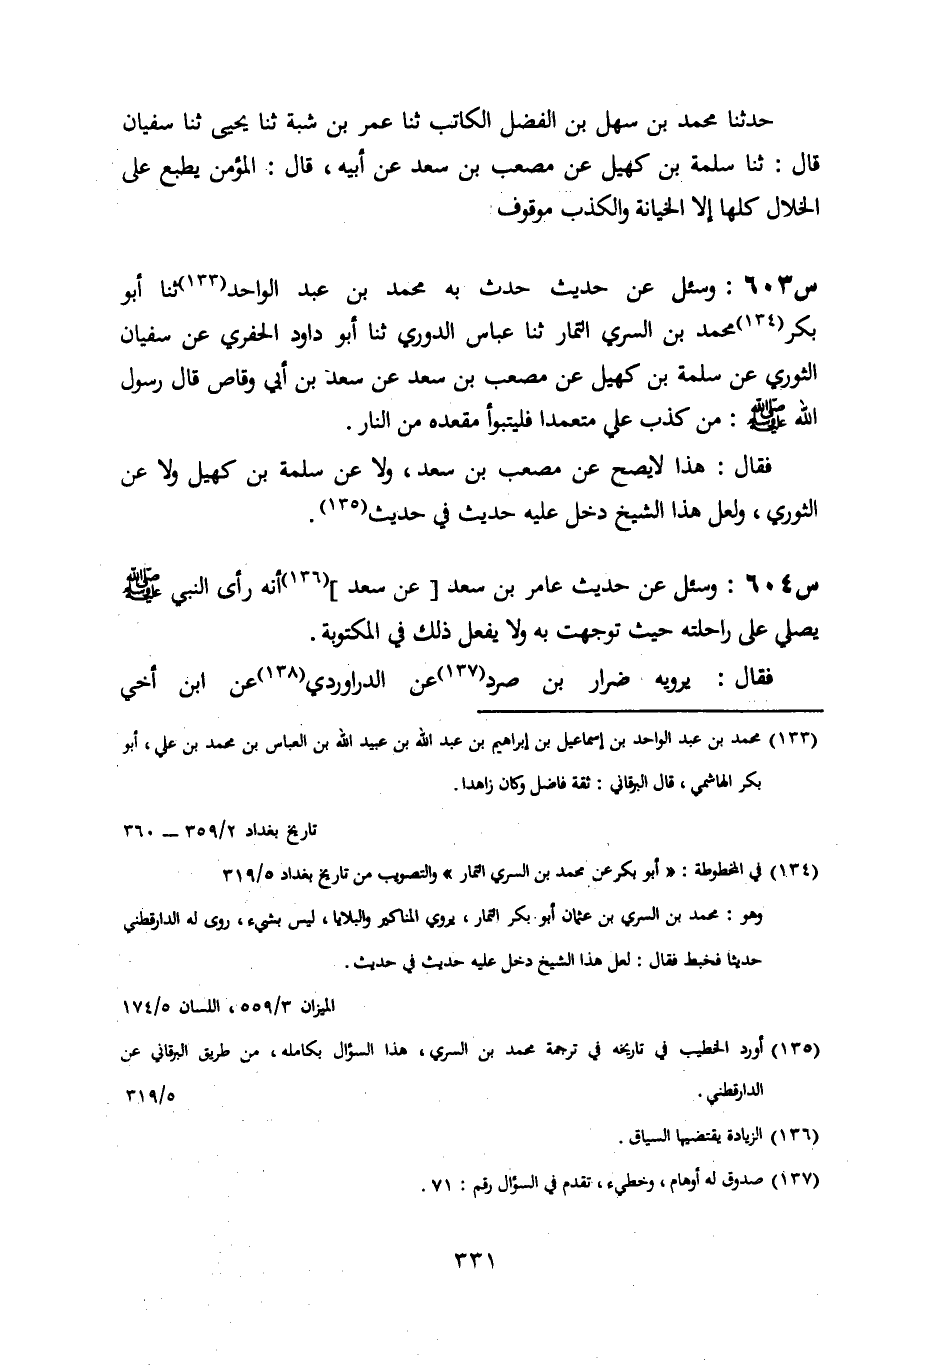 حدثنا محمد بن سهل بن الفضل الكاتب ثنا عمر بن شبة ثنا يحيى ثنا سفيان
قال : ثنا سلمة بن كهيل عن مصعب بن سعد عن أبيه ، قال : المؤمن يطبع على
الخلال كلها إلا الخيانة والكذب موقوف
س٦٠٣ : وسئل عن حديث حدث به محمد بن عبد الواحد(١٣٣)ثنا أبو
بكر(١٣٤)محمد بن السري التمار ثنا عباس الدوري ثنا أبو داود الحفري عن سفيان
الثوري عن سلمة بن كهيل عن مصعب بن سعد عن سعد بن أبي وقاص قال رسول
الله ﷺ : من كذب علي متعمدا فليتبوأ مقعده من النار .
فقال : هذا لايصح عن مصعب بن سعد ، ولا عن سلمة بن كهيل ولا عن
الثوري ، ولعل هذا الشيخ دخل عليه حديث في حديث(١٣٥) .
س٦٠٤ : وسئل عن حديث عامر بن سعد [ عن سعد ](١٣٦)أنه رأى النبي ﷺ
يصلي على راحلته حيث توجهت به ولا يفعل ذلك في المكتوبة .
فقال : يرويه ضرار بن صرد(١٣٧)عن الدراوردي(١٣٨)عن ابن أخي
(١٣٣) محمد بن عبد الواحد بن إسماعيل بن إبراهيم بن عبد الله بن عبيد الله بن العباس بن محمد بن علي ، أبو
بكر الهاشمي ، قال البرقاني : ثقة فاضل وكان زاهدا .
تاريخ بغداد ٣٥٩/٢ — ٣٦٠
(١٣٤) في المخطوطة : « أبو بكر عن محمد بن السري التمار » والتصويب من تاريخ بغداد ٣١٩/٥
وهو : محمد بن السري بن عثمان أبو بكر التمار ، يروي المناكير والبلايا ، ليس بشيء ، روى له الدارقطني
حديثا فخبط فقال : لعل هذا الشيخ دخل عليه حديث في حديث .
الميزان ٥٥٩/٣ ، اللسان ١٧٤/٥
(١٣٥) أورد الخطيب في تاريخه في ترجمة محمد بن السري ، هذا السؤال بكامله ، من طريق البرقاني عن
الدارقطني . ٣١٩/٥
(١٣٦) الزيادة يقتضيها السياق .
(١٣٧) صدوق له أوهام ، وخطيء ، تقدم في السؤال رقم : ٧١ .
٣٣١